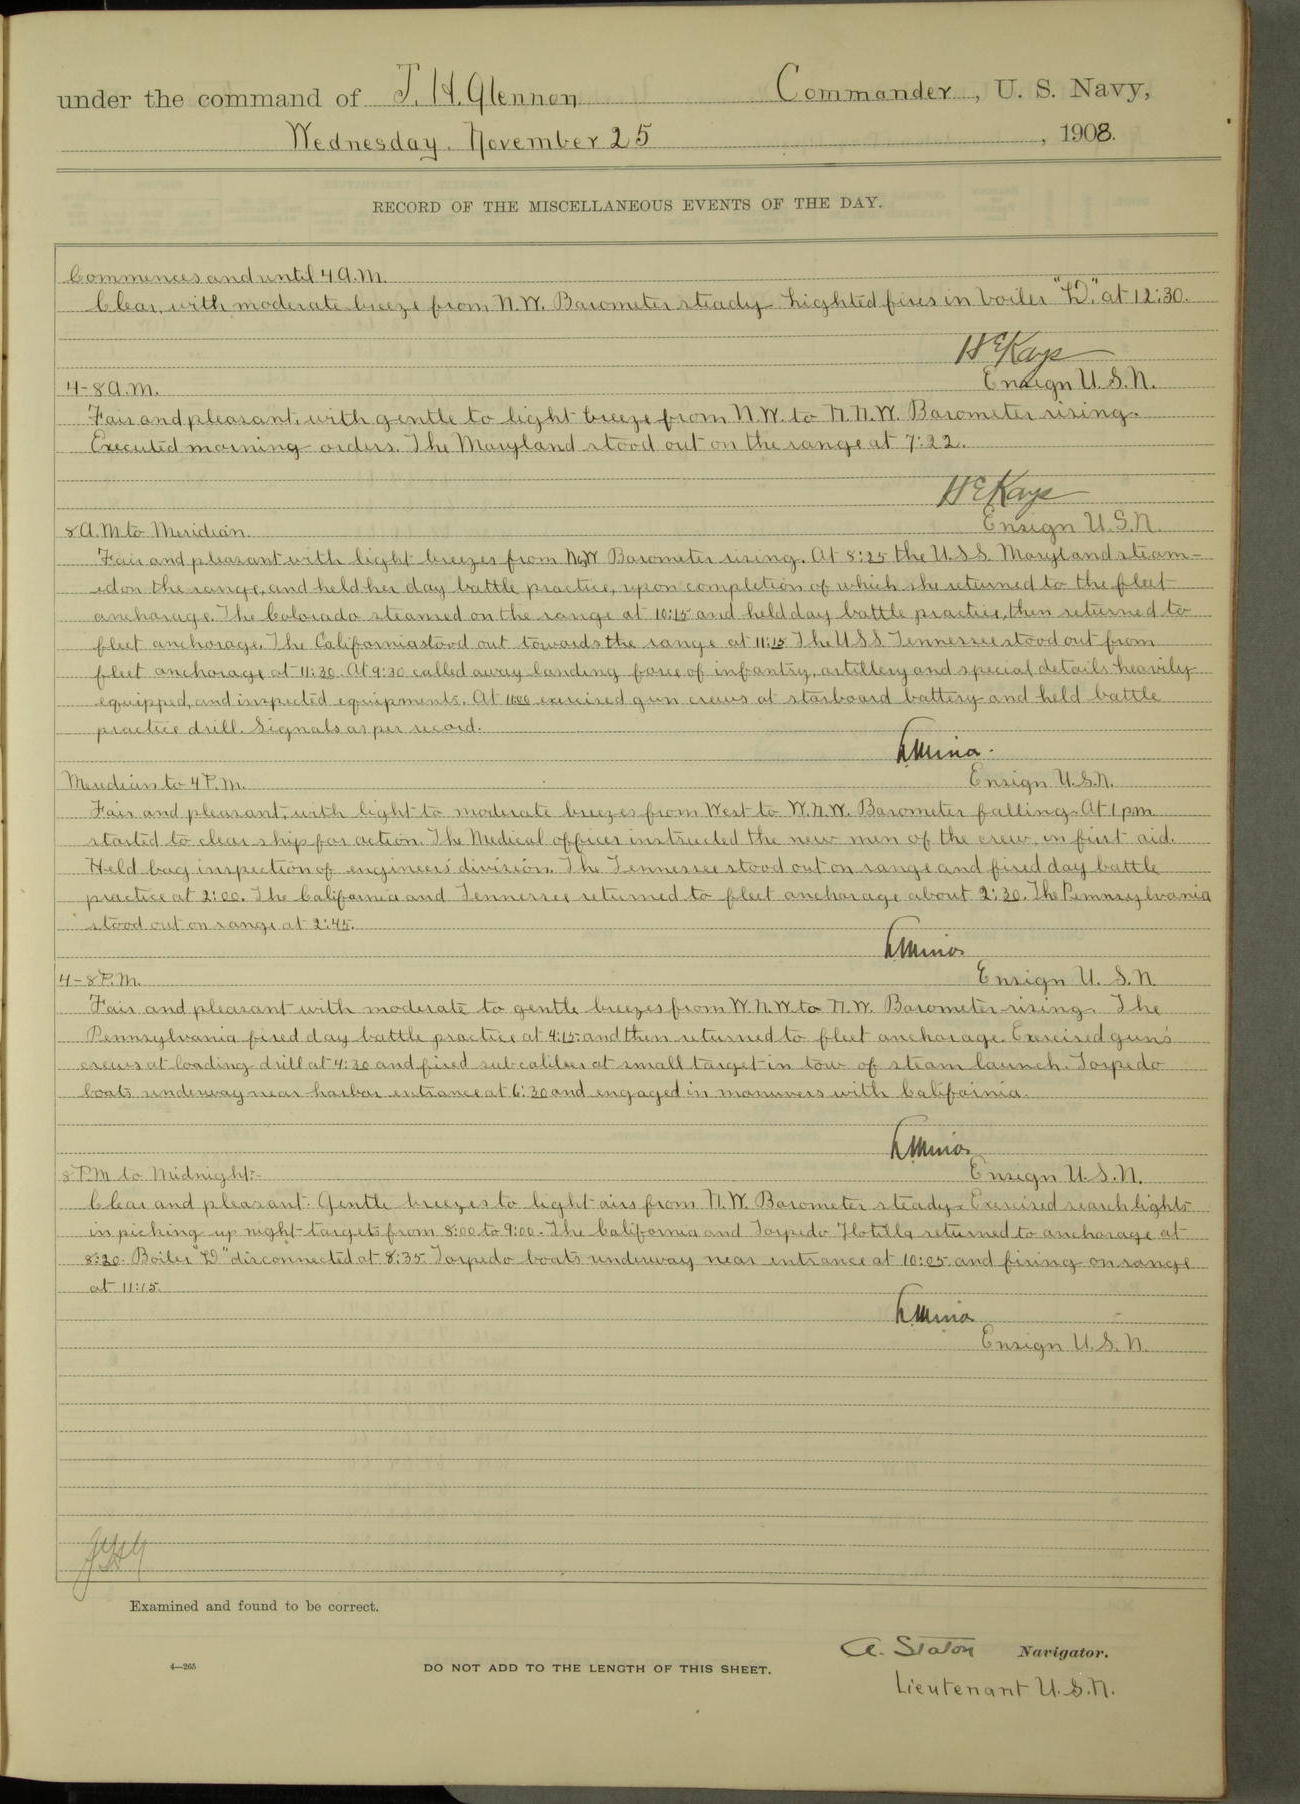 under the command of J. H. Glennon Commander, U. S. Navy,
Wednesday. November 25, 1908.
RECORD OF THE MISCELLANEOUS EVENTS OF THE DAY.
Commences and until 4 A.M.
Clear, with moderate breeze from N.W. Barometer steady. Lighted fires in boiler "D." at 12:30.
H E Kays
Ensign U.S.N.
4-8 A.M.
Fair and pleasant, with gentle to light breeze from N.W. to N.N.W. Barometer rising.
Executed morning orders. The Maryland stood out on the range at 7:22.
H E Kays
Ensign U.S.N.
8 A.M to Meridian.
Fair and pleasant with light breezes from Barometer rising. At 8:25 the U.S.S. Maryland steam-
ed on the range, and held her day battle practice, upon completion of which she returned to the fleet
anchorage. The Colorado steamed on the range at 10:15 and held day battle practice, then returned to
fleet anchorage. The California stood out towards the range at 11:15 The U.S.S. Tennessee stood out from
fleet anchorage at 11:30. At 9:30 called away landing force of infantry, artillery and special details heavily
equipped, and inspected equipments. At 10:00 exercised gun crews at starboard battery and held battle
practice drill. Signals as per record.
Ensign U.S.N.
Meridian to 4 P.M.
Fair and pleasant, with light to moderate breezes from West to W.N.W. Barometer falling. At 1 pm
started to clear ship for action. The Medical officer instructed the new men of the crew in first aid.
Held bag inspection of engineers' division. The Tennessee stood out on range and fired day battle
practice at 2:00. The California and Tennessee returned to fleet anchorage about 2:30. The Pennsylvania
stood out on range at 2:45.
Ensign U. S. N.
4-8 P.M.
Fair and pleasant with moderate to gentle breezes from W.N.W. to N.W. Barometer rising. The
Pennsylvania fired day battle practice at 4:15 and then returned to fleet anchorage. Exercised gun's
crews at loading drill at 4:30 and fired sub caliber at small target in tow of steam launch. Torpedo
boats underway near harbor entrance at 6:30 and engaged in manuvers with California.
Ensign U.S.N.
8 P.M to Midnight:-
Clear and pleasant. Gentle breezes to light airs from N.W. Barometer steady. Exercised search lights
in picking up night targets from 8:00 to 9:00. The California and Torpedo Flotilla returned to anchorage at
8:20. Boiler "D" disconnected at 8:35. Torpedo boats underway near entrance at 10:05 and firing on range
at 11:15.
Ensign U. S. N.
Examined and found to be correct.
A. Staton Navigator.
4—265 DO NOT ADD TO THE LENGTH OF THIS SHEET.
Lieutenant U.S.N.